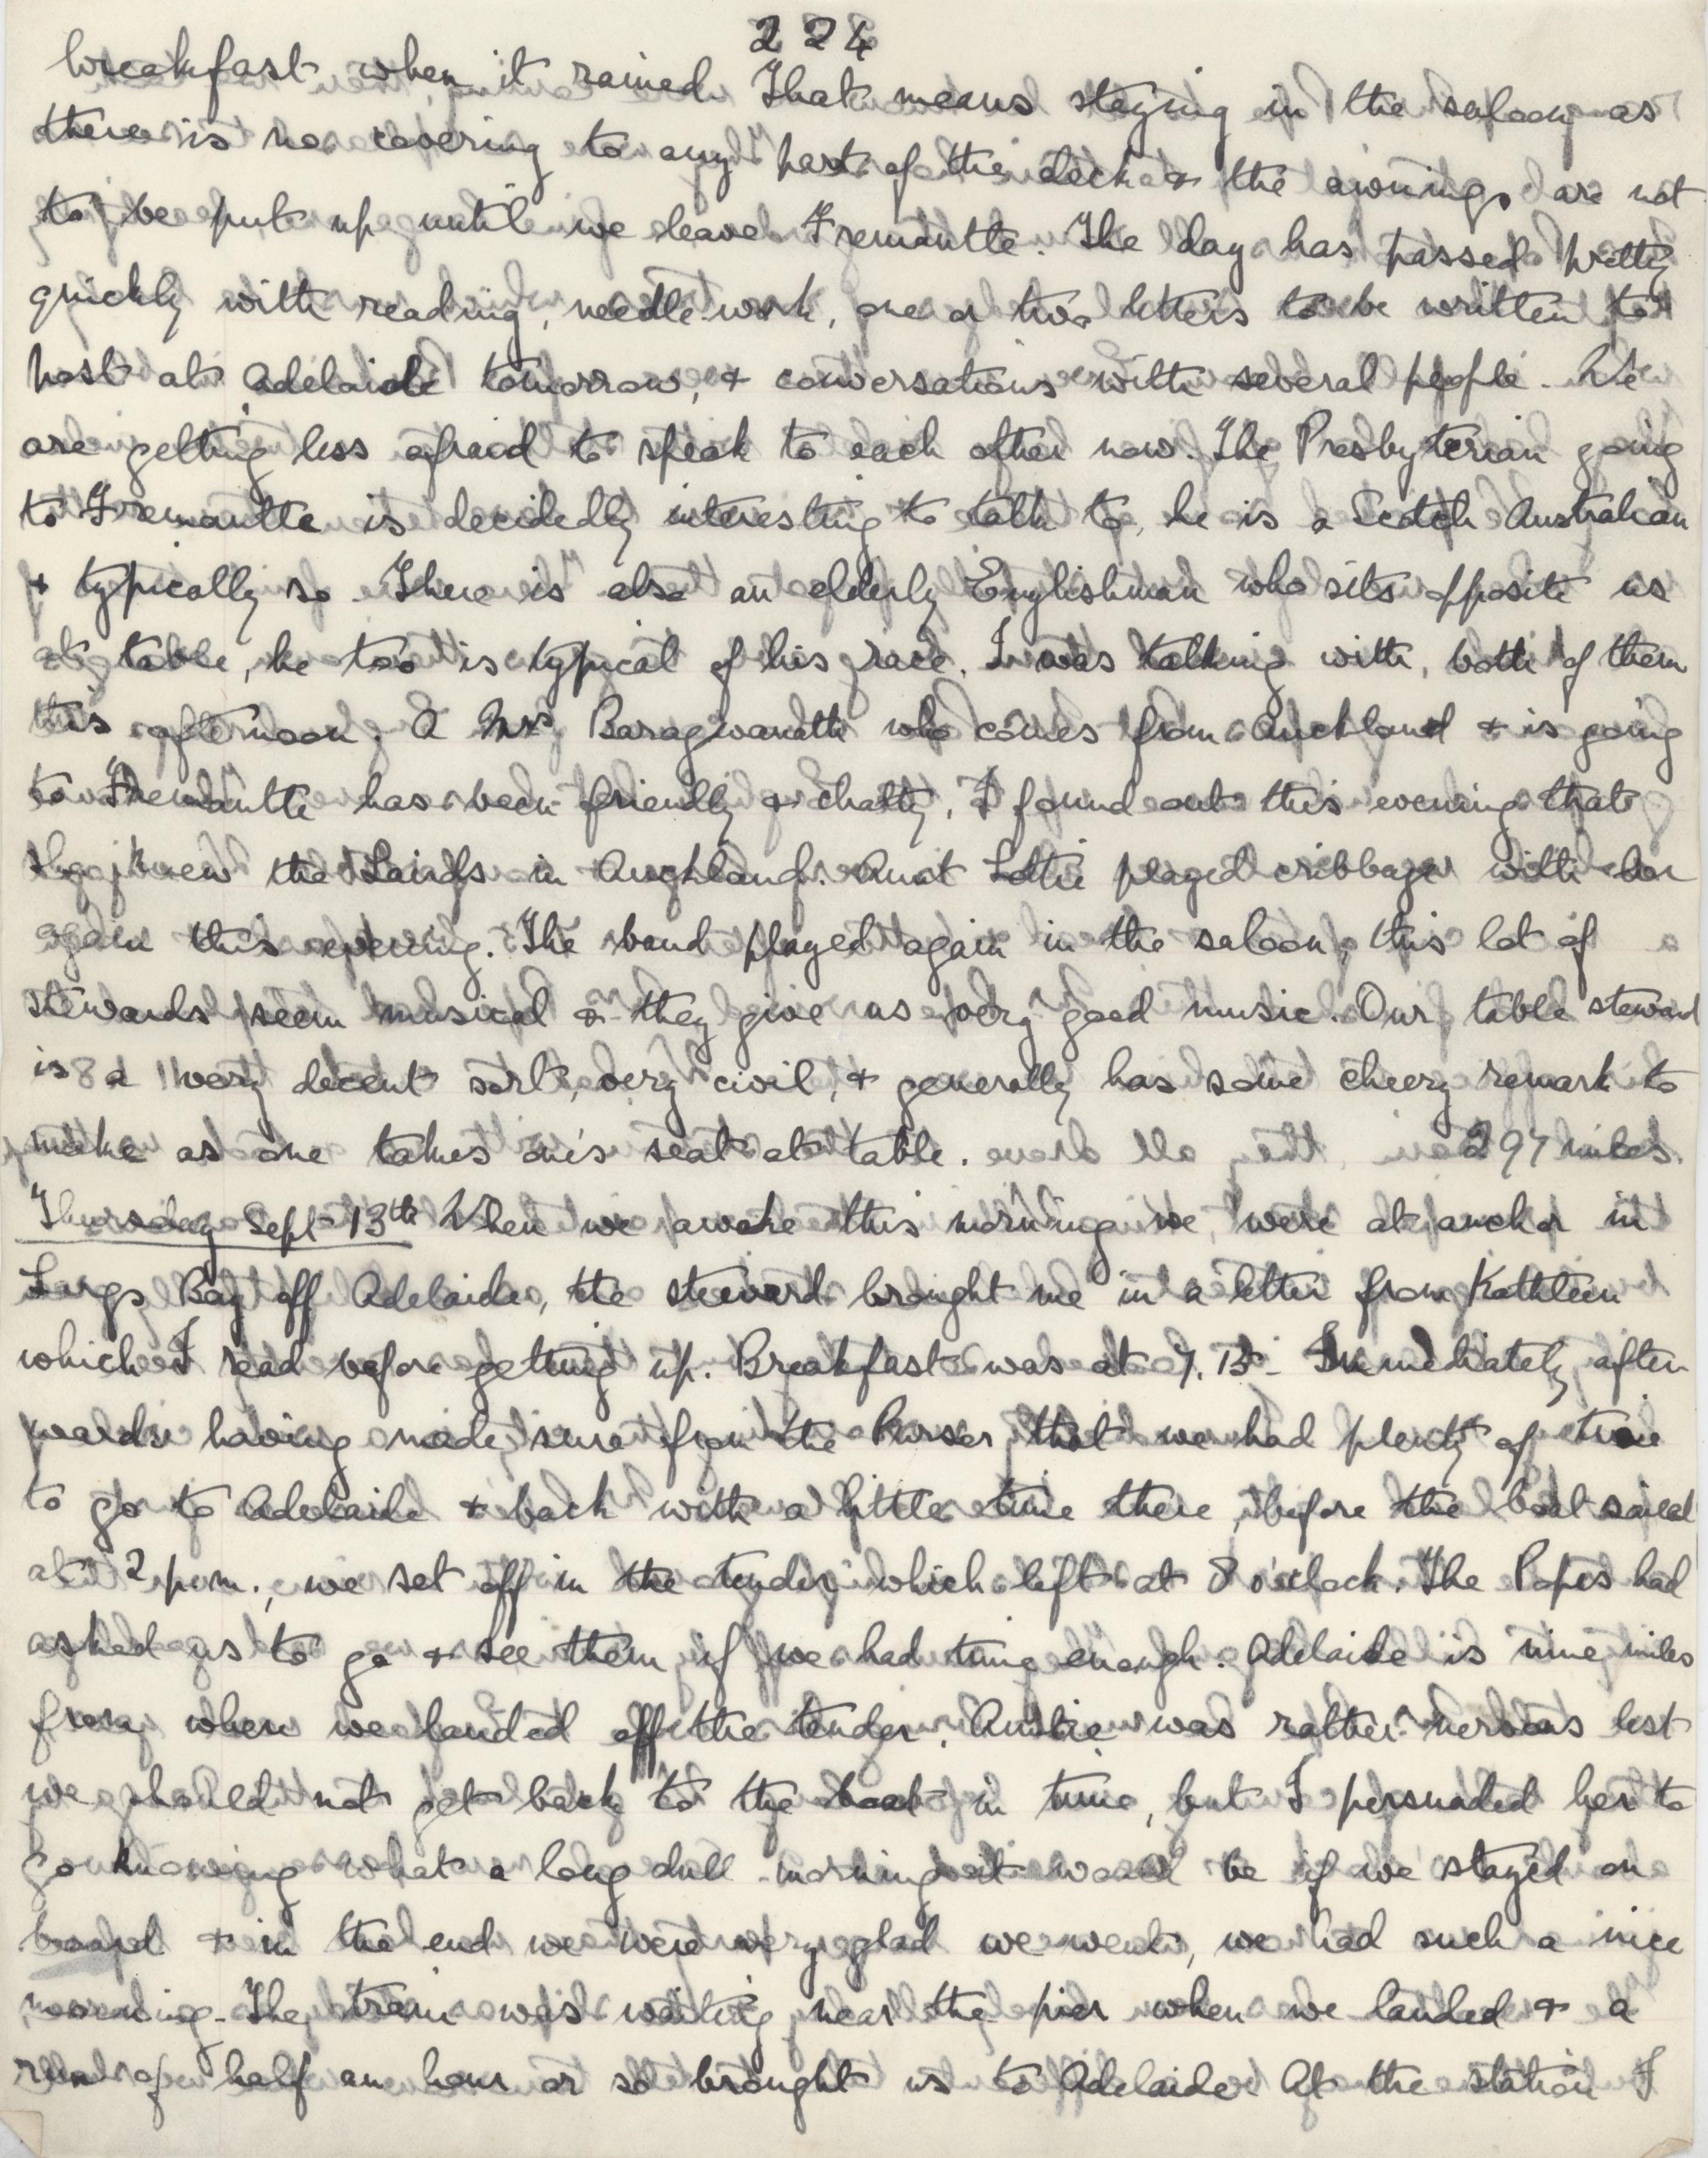 224
breakfast when it rained. That means staying in the saloon as
there is no covering to any part of the deck & the awnings are not
to be put up until we leave Fremantle. The day has passed pretty
quickly with reading, needle-work, one or two letters to be written to
post at Adelaide tomorrow, & conversations with several people. We
are getting less afraid to speak to each other now. The Presbyterian going
to Fremantle is decidedly interesting to talk to, he is a Scotch Australian
& typically so. There is also an elderly Englishman who sits opposite us
at table, he too is typical of his race. I was talking with both of them
this afternoon. A Mrs Baragwanath who comes from Auckland & is going
to Fremantle has been friendly & chatty, I found out this evening that
she knew the Lairds in Auckland. Aunt Lottie played cribbage with her
again this evening. The band played again in the saloon, this lot of
stewards seem musical & they give us very good music. Our table steward
is a very decent sort, very civil, & generally has some cheery remark to
make as one takes one's seat at table. 297 miles.
Thursday Sept 13th When we awoke this morning we were at anchor in
Largs Bay off Adelaide, the steward brought me in a letter from Kathleen
which I read before getting up. Breakfast was at 7.15. Immediately after
wards having made sure from the Purser that we had plenty of time
to go to Adelaide & back with a little time there, before the boat sailed
at 2 p.m., we set off in the tender which left at 8 o'clock. The Popes had
asked us to go & see them if we had time enough. Adelaide is nine miles
from where we landed off the tender. Auntie was rather nervous lest
we should not get back to the boat in time, but I persuaded her to
go knowing what a long dull morning it would be if we stayed on
board & in the end we were very glad we went, we had such a nice
morning. The train was waiting near the pier when we landed & a
run of half an hour or so brought us to Adelaide. At the station I